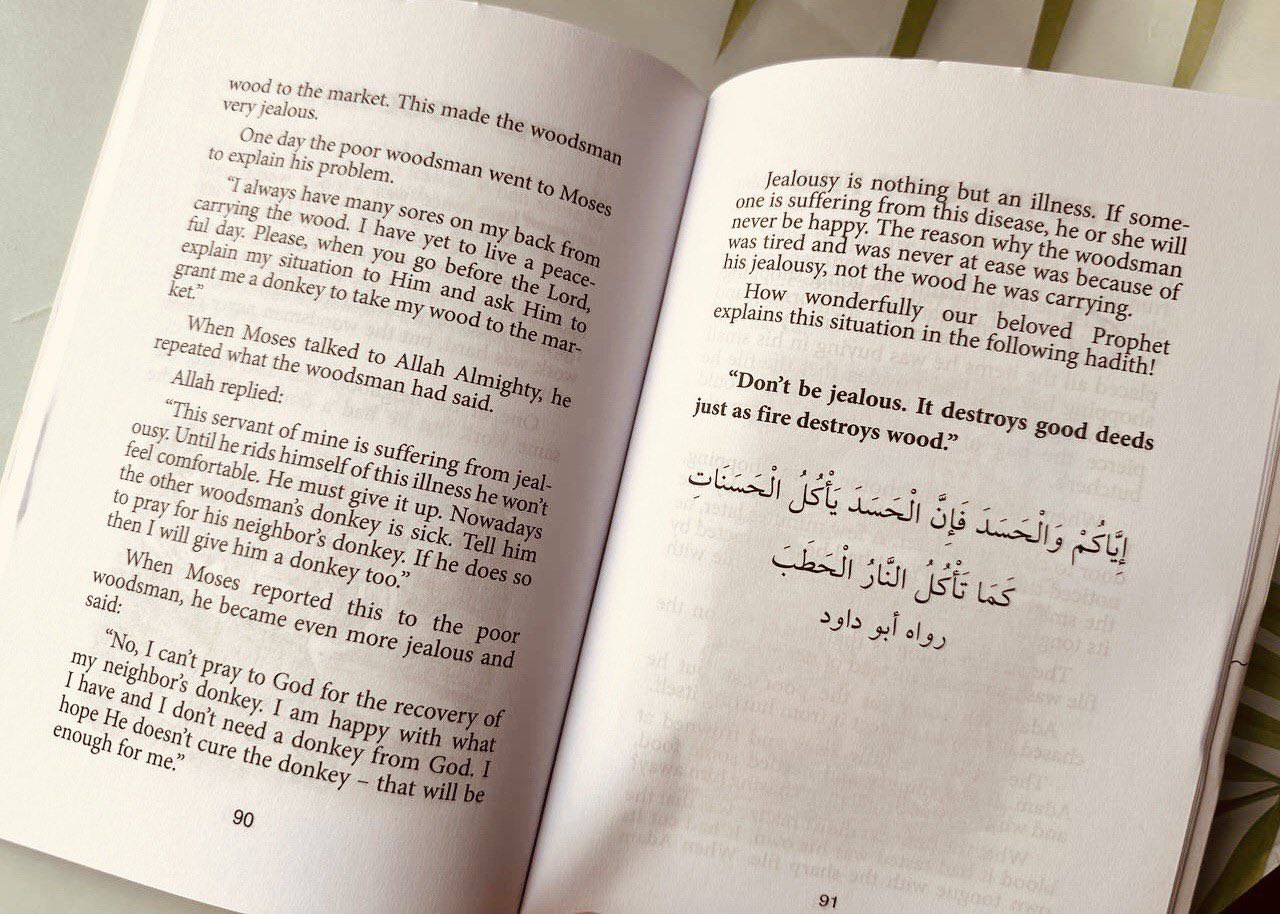 wood to the market. This made the woodsman
very jealous.
One day the poor woodsman went to Moses
to explain his problem.
“I always have many sores on my back from
carrying the wood. I have yet to live a peace-
ful day. Please, when you go before the Lord,
explain my situation to Him and ask Him to
grant me a donkey to take my wood to the mar-
ket.”
When Moses talked to Allah Almighty, he
repeated what the woodsman had said.
Allah replied:
“This servant of mine is suffering from jeal-
ousy. Until he rids himself of this illness he won’t
feel comfortable. He must give it up. Nowadays
the other woodsman’s donkey is sick. Tell him
to pray for his neighbor’s donkey. If he does so
then I will give him a donkey too.”
When Moses reported this to the poor
woodsman, he became even more jealous and
said:
“No, I can’t pray to God for the recovery of
my neighbor’s donkey. I am happy with what
I have and I don’t need a donkey from God. I
hope He doesn’t cure the donkey – that will be
enough for me.”
90
Jealousy is nothing but an illness. If some-
one is suffering from this disease, he or she will
never be happy. The reason why the woodsman
was tired and was never at ease was because of
his jealousy, not the wood he was carrying.
How wonderfully our beloved Prophet
explains this situation in the following hadith!
“Don’t be jealous. It destroys good deeds
just as fire destroys wood.”
إِيَّاكُمْ وَالْحَسَدَ فَإِنَّ الْحَسَدَ يَأْكُلُ الْحَسَنَاتِ
كَمَا تَأْكُلُ النَّارُ الْحَطَبَ
رواه أبو داود
91